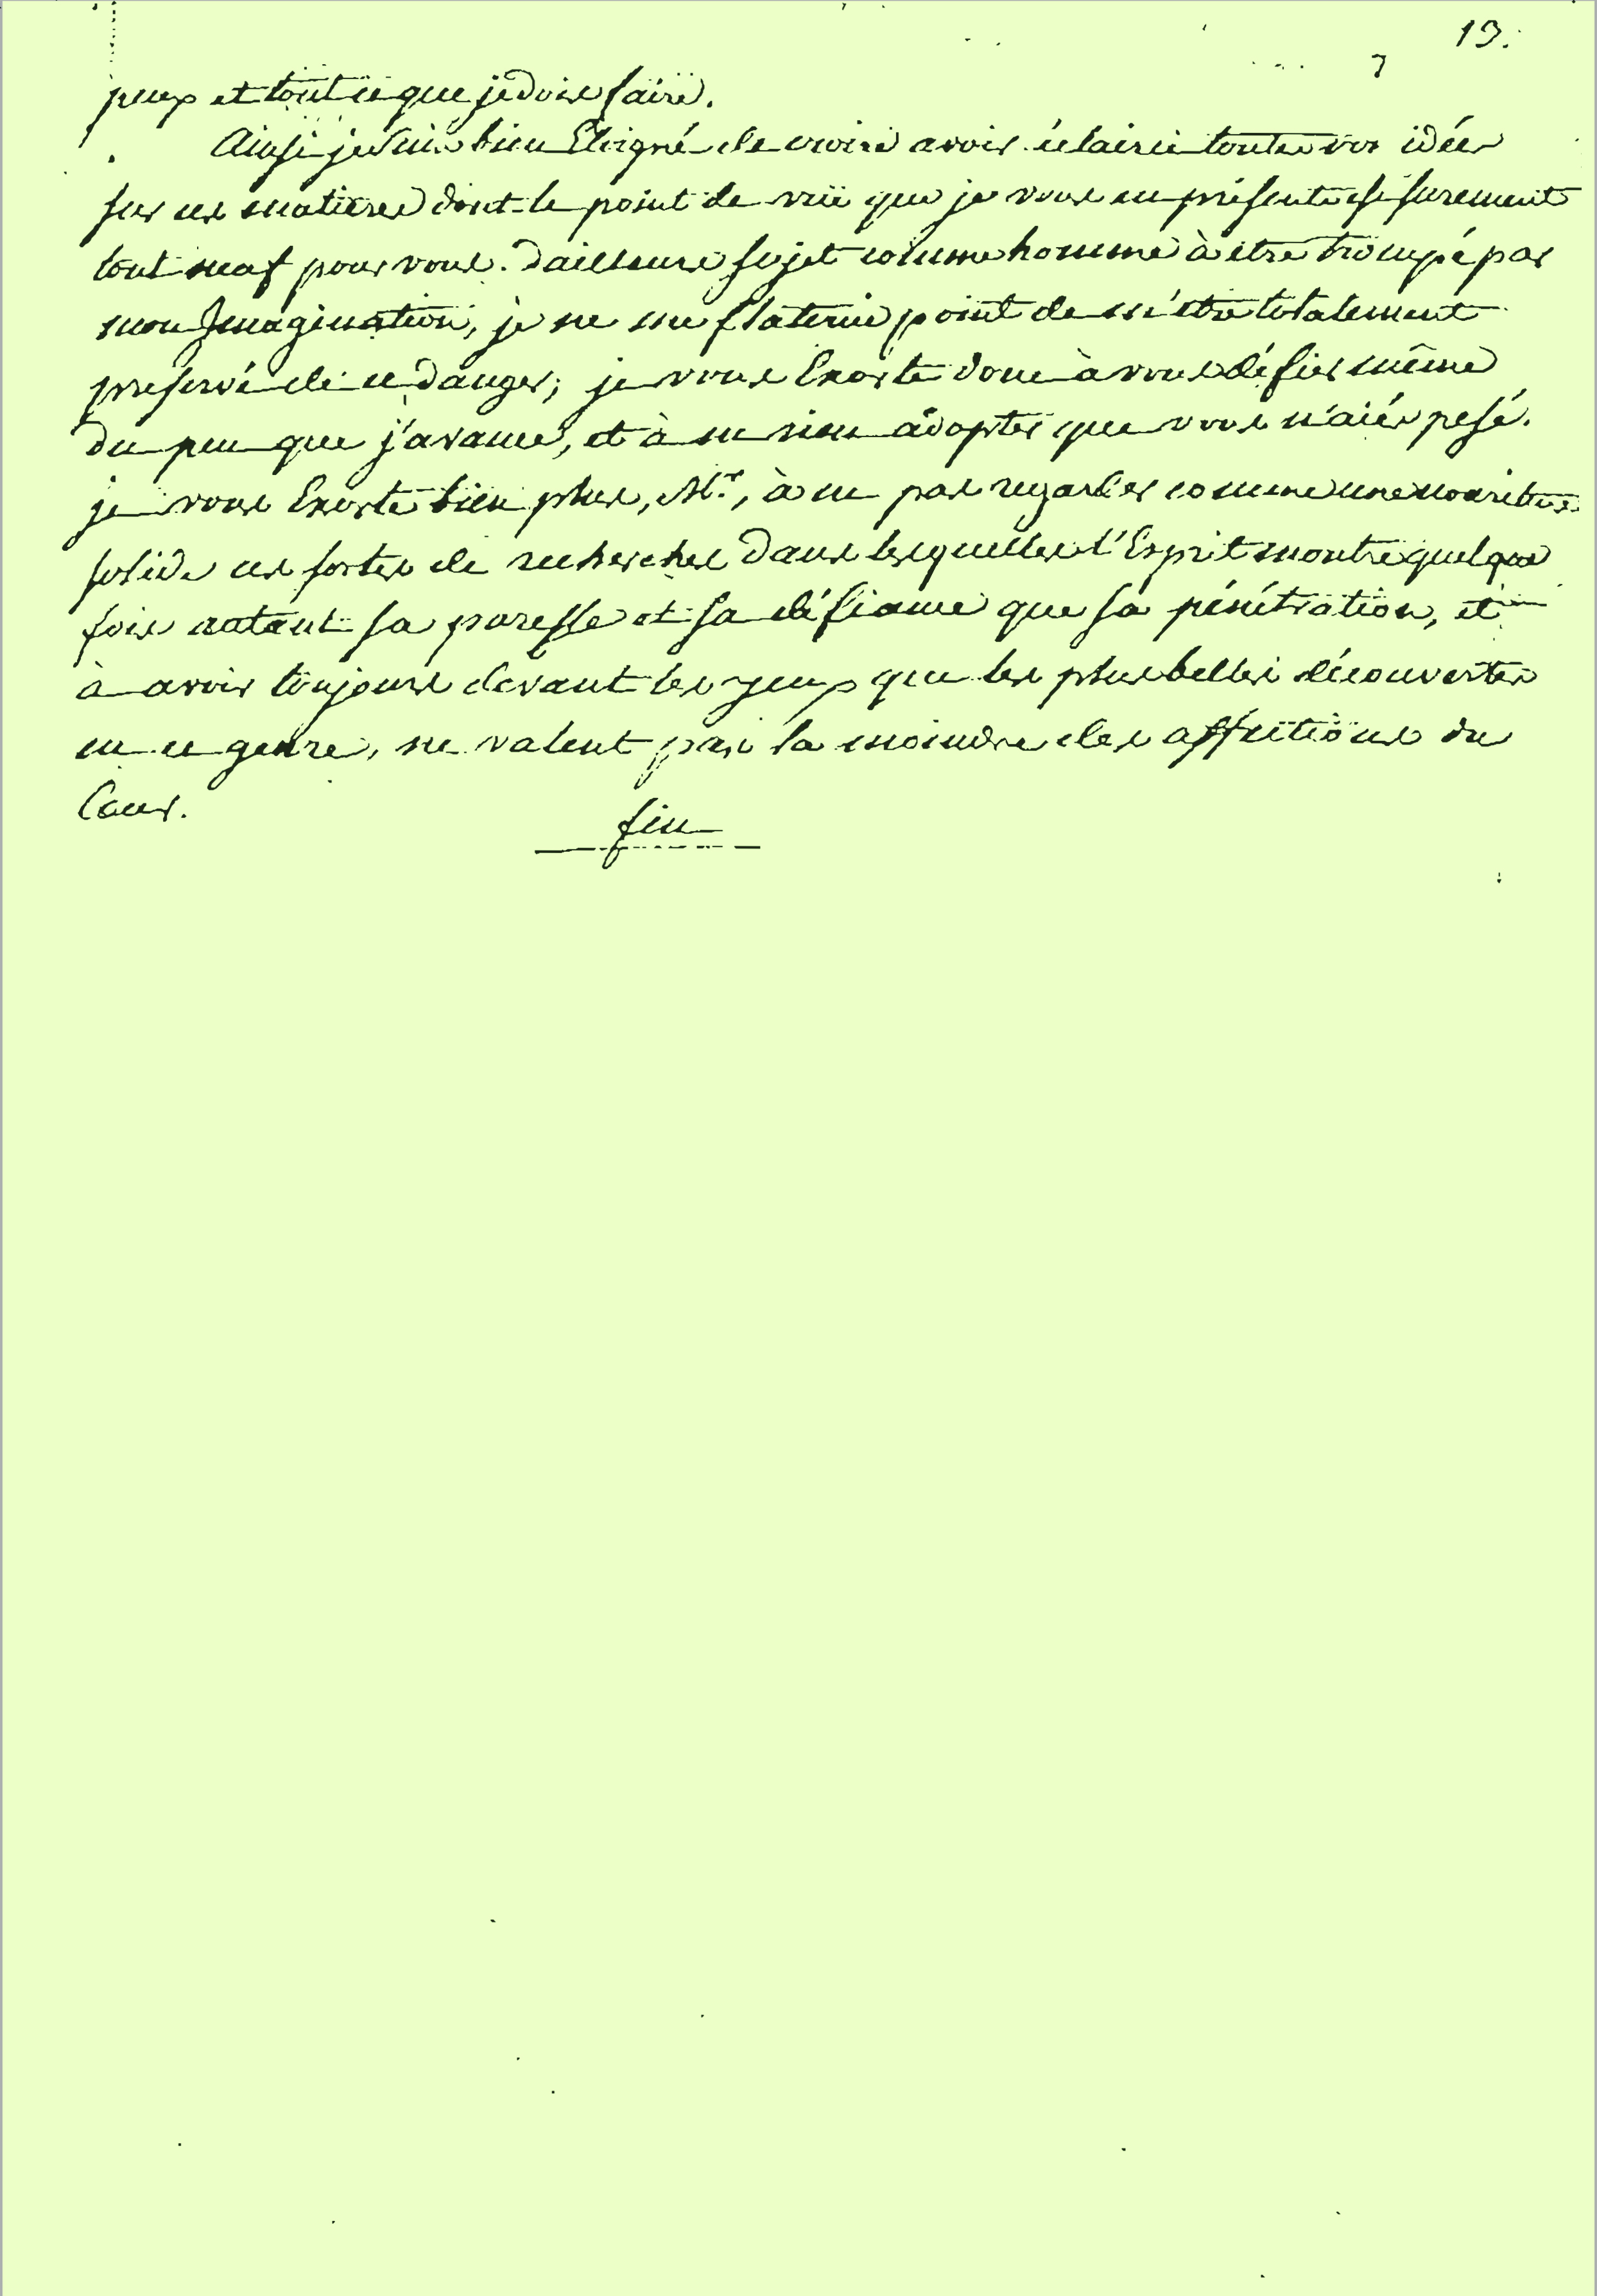 19.
peux et tout ce que je dois faire.
Ainsi je suis bien Eloigné de croire avoir éclairci toutes vos idées
sur ces matieres dont le point de vüe que je vous en présente est surement
tout neuf pour vous. Dailleurs sujet comme homme à etre trompé par
mon Imagination, je ne me flaterai point de m'etre totalement
preservé de ce danger; je vous Exorte donc à vous défier même
du peu que j'avance, et à ne rien adopter que vous n'aiés pesé.
je vous Exorte bien plus, Mr., à ne pas regarder comme une nouriture
solide ces sortes de recherches dans lesquelles l'Esprit montre quelque
fois autant sa paresse et sa défiance que sa pénétration, et
à avoir toujours devant les yeux que les plus belles découvertes
en ce genre, ne valent pas la moindre des affections du
Coeur.
fin